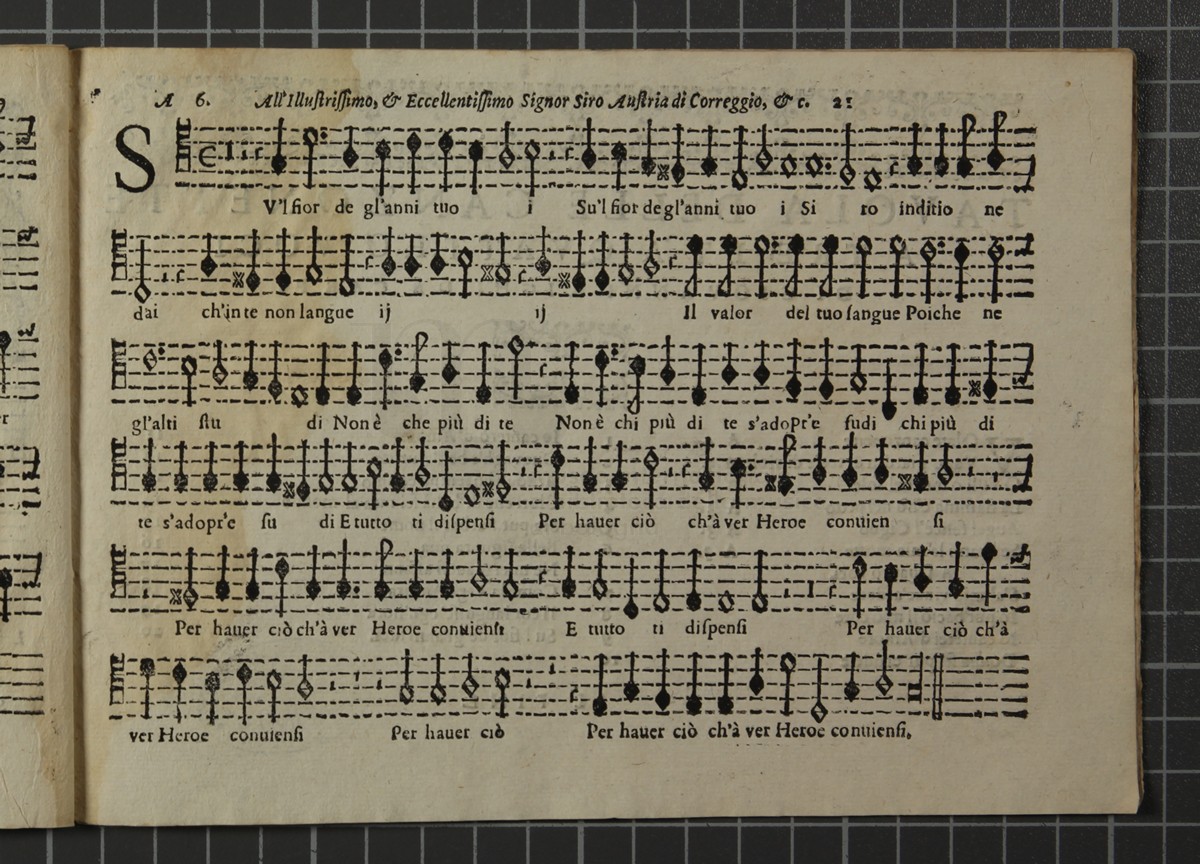 A 6. All'Illustrissimo, & Eccellentissimo Signor Siro Austria di Correggio, & c. 21
S
V'l fior de gl'anni tuo i Su'l fior de gl'anni tuo i Si ro inditio ne
dai ch'in te non langue ij ij Il valor del tuo sangue Poiche ne
gl'alti stu di Non è che più di te Non è chi più di te s'adopr'e sudi chi più di
te s'adopr'e su di E tutto ti dispensi Per hauer ciò ch'à ver Heroe conuien si
Per hauer ciò ch'à ver Heroe conuiensi E tutto ti dispensi Per hauer ciò ch'à
ver Heroe conuiensi Per hauer ciò Per hauer ciò ch'à ver Heroe conuiensi.